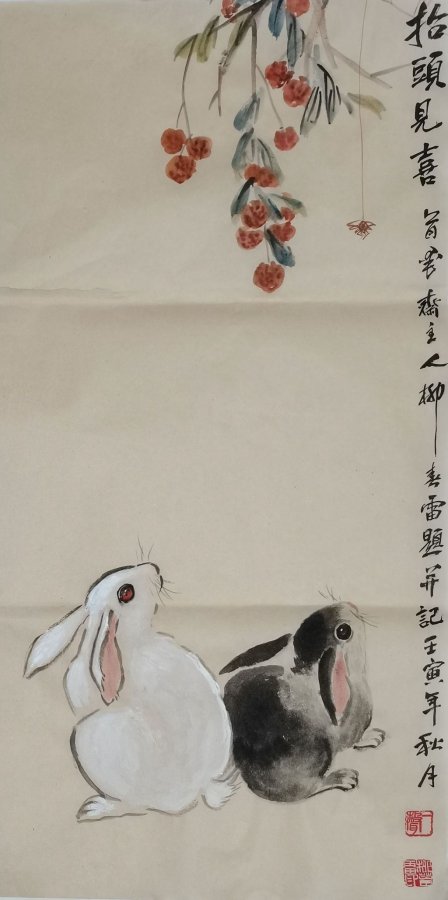 抬頭見喜 首采齋主人柳春雷題并記壬寅年秋月